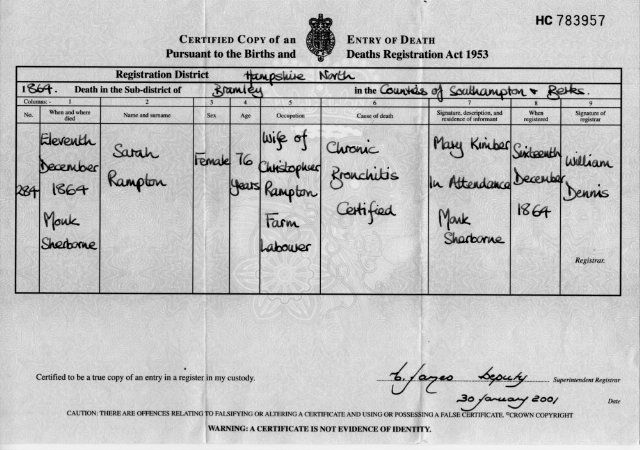 HC 783957
CERTIFIED COPY of an ENTRY OF DEATH
Pursuant to the Births and Deaths Registration Act 1953
Registration District Hampshire North
1864. Death in the Sub-district of Bramley in the Counties of Southampton & Berks.
Columns:- 1 2 3 4 5 6 7 8 9
No. When and where died Name and surname Sex Age Occupation Cause of death Signature, description, and residence of informant When registered Signature of registrar
284
Eleventh
December
1864
Monk
Sherborne
Sarah
Rampton
Female
76
Years
Wife of
Christopher
Rampton
Farm
Labourer
Chronic
Bronchitis
Certified
Mary Kimber
In Attendance
Monk
Sherborne
Sixteenth
December
1864
William
Dennis
Registrar.
Certified to be a true copy of an entry in a register in my custody.
Deputy Superintendent Registrar
30 January 2001 Date
CAUTION: THERE ARE OFFENCES RELATING TO FALSIFYING OR ALTERING A CERTIFICATE AND USING OR POSSESSING A FALSE CERTIFICATE. ©CROWN COPYRIGHT
WARNING: A CERTIFICATE IS NOT EVIDENCE OF IDENTITY.